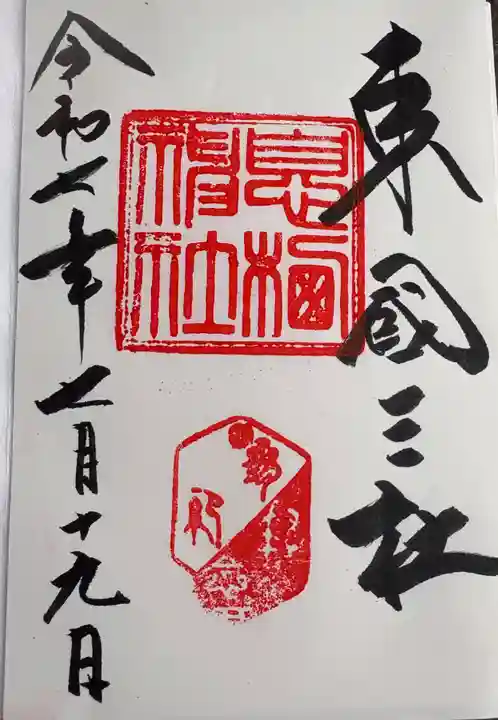 東國三社
息栖
神社
令和七年七月十九日